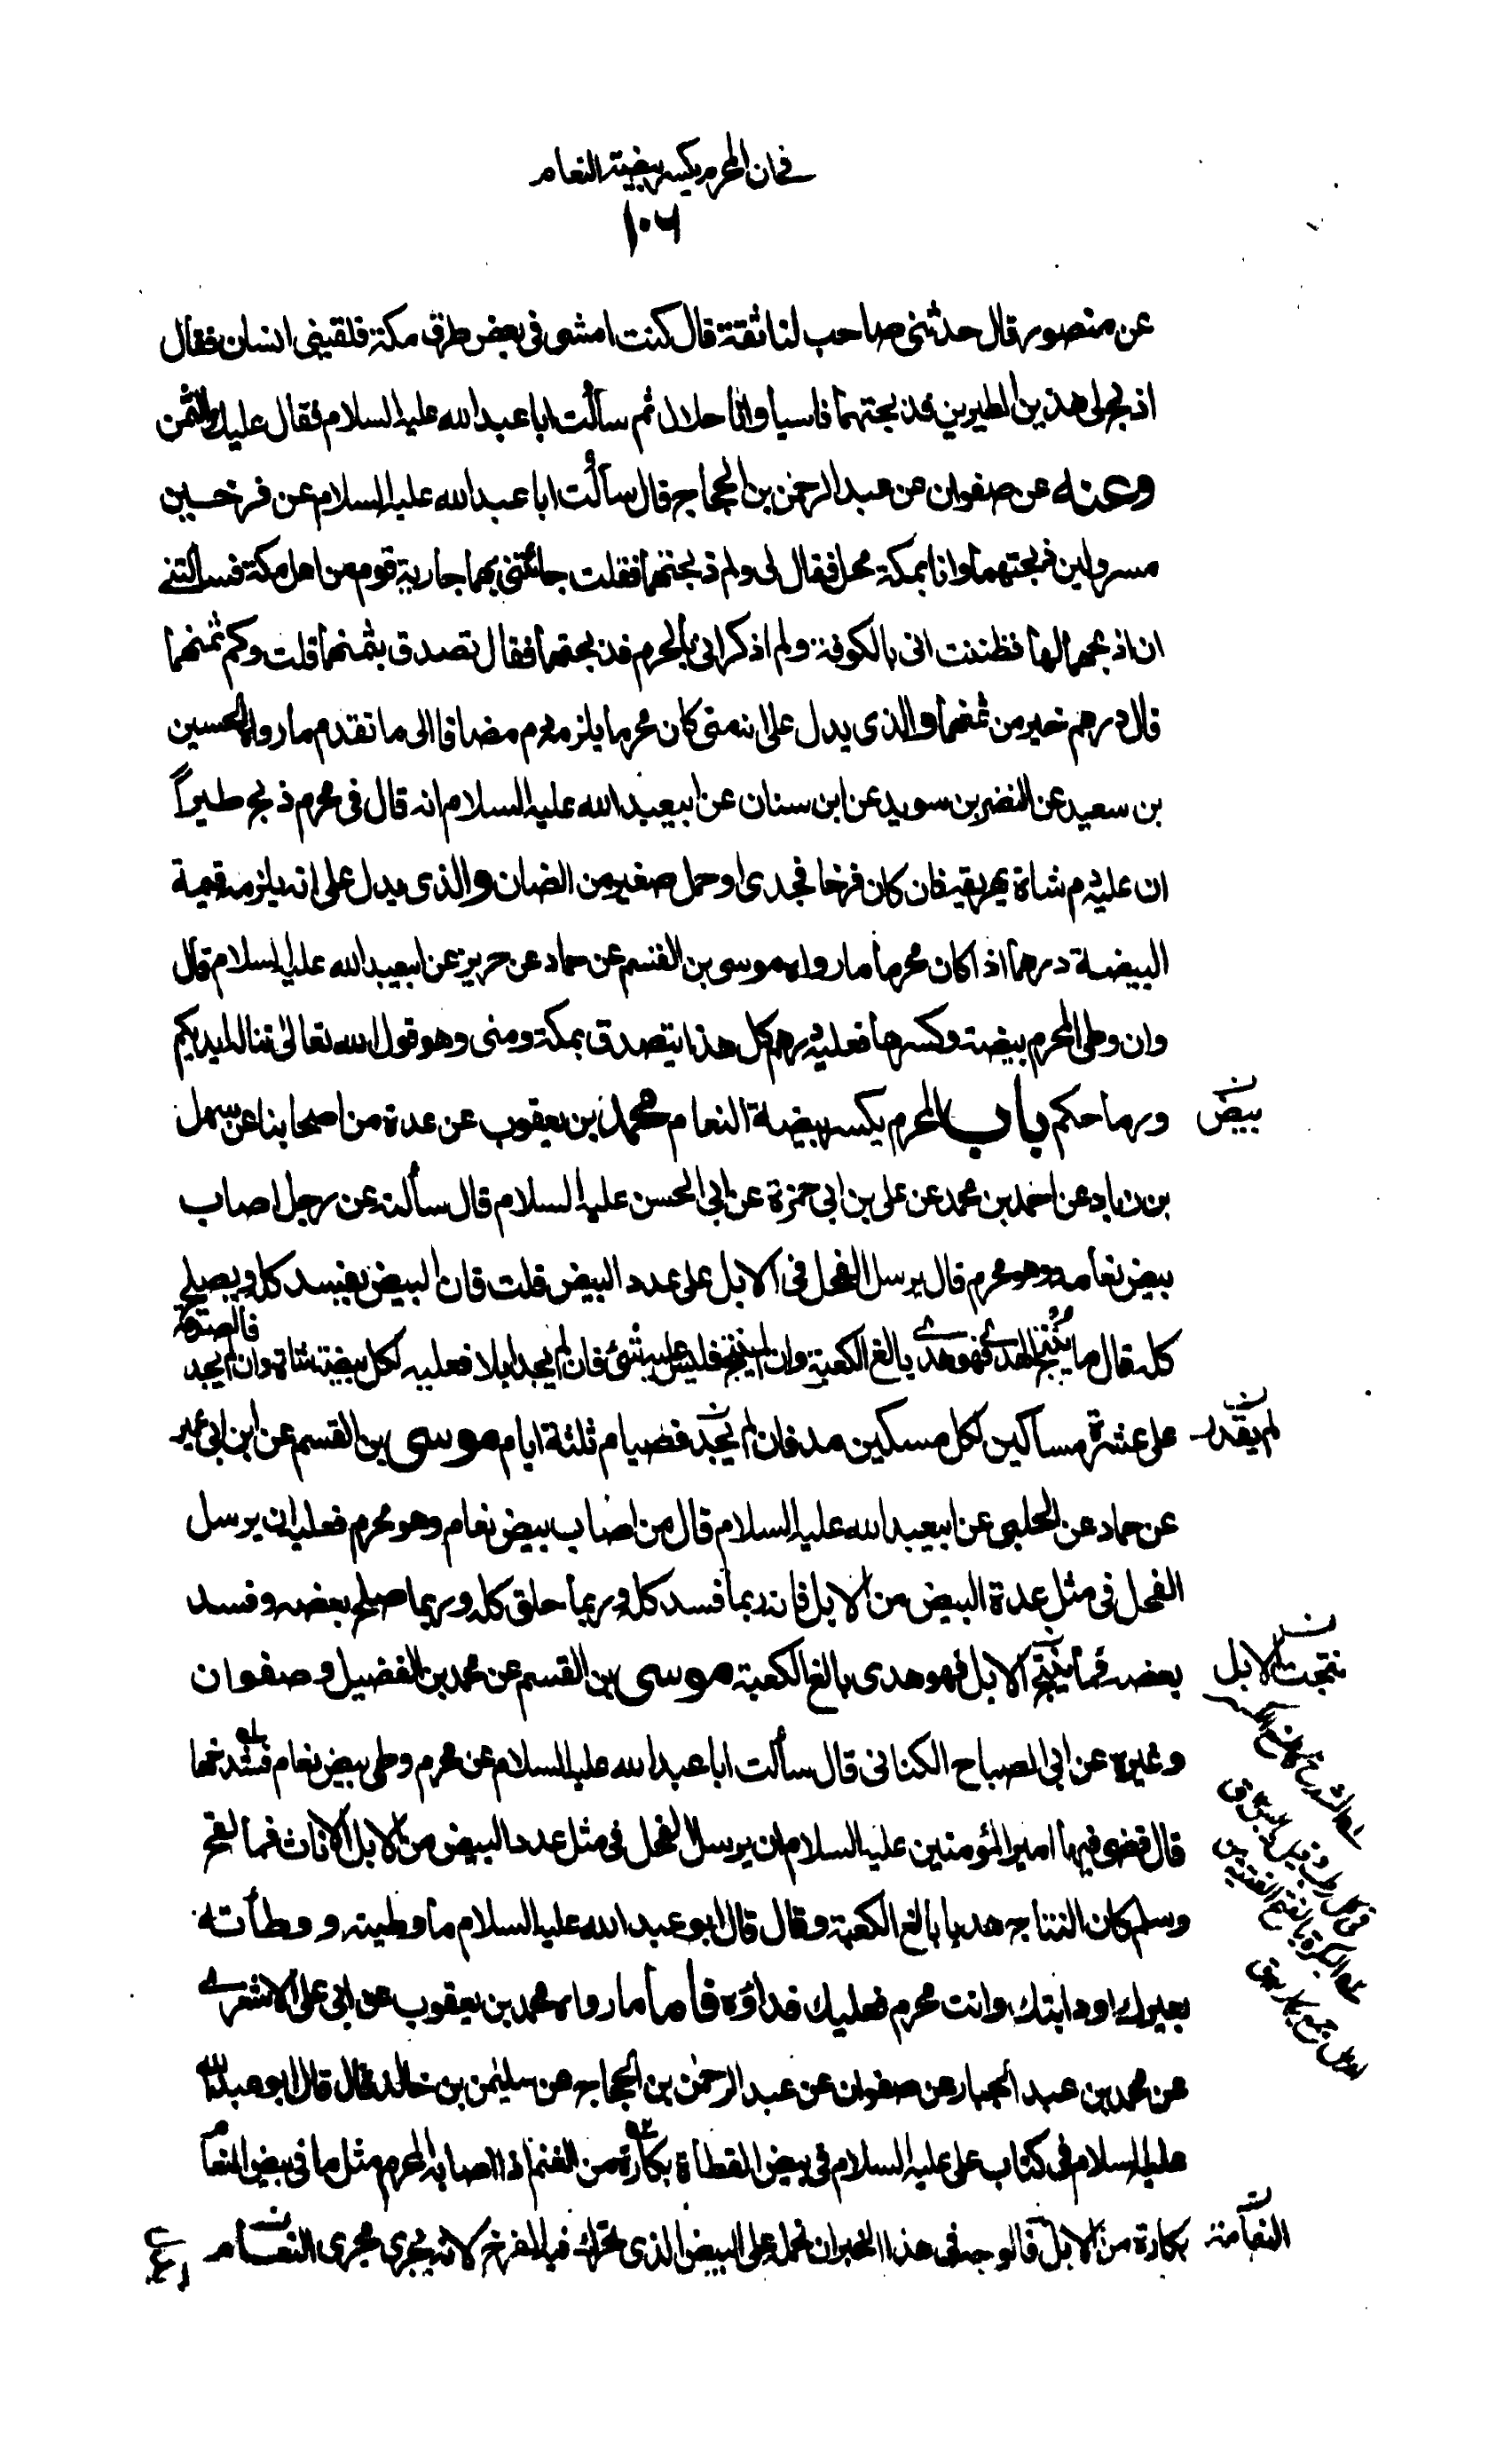 في ان المحرم يكسر بيضة النعام
١٠٦
عن منصور قال حدثنى صاحب لنا ثقة قال كنت امشى فى بعض طرق مكة فلقينى انسان فقال
اذبح لى هذين الطيرين فذبحتهما ناسيا وانا حلال ثم سألت ابا عبد الله عليه السلام فقال عليك الثمن
وعنه عن صفوان عن عبد الرحمن بن الحجاج قال سألت ابا عبد الله عليه السلام عن فرخين
مسرولين ذبحتهما وانا بمكة محل فقال لى ولم ذبحتهما فقلت جائتنى بهما جارية قوم من اهل مكة فسألتنى
ان اذبحهما لها فظننت انى بالكوفة ولم اذكر انى بالحرم فذبحتهما فقال تصدق بثمنهما قلت وكم ثمنهما
قال درهم خير من ثمنهما والذى يدل على انه متى كان محرما يلزمه دم مضافا الى ما تقدم ما رواه الحسين
بن سعيد عن النضر بن سويد عن ابن سنان عن ابيعبد الله عليه السلام انه قال فى محرم ذبح طيراً
ان عليه دم شاة يهريقه فان كان فرخا فجدى او حمل صغير من الضان والذى يدل على انه يلزمه قيمة
البيضة درهما اذا كان محرما ما رواه موسى بن القسم عن حماد عن حريز عن ابيعبد الله عليه السلام قال
وان وطى المحرم بيضة وكسرها فعليه درهم كل هذا يتصدق بمكة ومنى وهو قول الله تعالى تناله ايديكم
ورماحكم باب المحرم يكسر بيضة النعام محمد بن يعقوب عن عدة من اصحابنا عن سهل
بيض
بن زياد عن احمد بن محمد عن على بن ابى حمزة عن ابى الحسن عليه السلام قال سألته عن رجل اصاب
بيض نعامة وهو محرم قال يرسل الفحل فى الابل على عدد البيض قلت فان البيض يفسد كله ويصلح
كله قال ما ينتج الهدى فهو هدى بالغ الكعبة وان لم ينتج فليس عليه شئ فان لم يجد ابلا فعليه لكل بيضة شاة وان لم يجد
فالصدقة
على عشرة مساكين لكل مسكين مد فان لم يجد فصيام ثلثة ايام موسى بن القسم عن ابن ابى عمير
لم يقدر
عن حماد عن الحلبى عن ابيعبد الله عليه السلام قال من اصاب بيض نعام وهو محرم فعليه ان يرسل
الفحل فى مثل عدة البيض من الابل فانه ربما فسد كله وربما خلق كله وربما صلح بعضه وفسد
بعضه فما ينتج الابل فهو هدى بالغ الكعبة موسى بن القسم عن محمد بن الفضيل وصفوان
نتجت الابل
وغيره عن ابى الصباح الكنانى قال سألت ابا عبد الله عليه السلام عن محرم وطى بيض نعام فشدخها
قال قضى فيها امير المؤمنين عليه السلام ان يرسل الفحل فى مثل عدد البيض من الابل الاناث فما لقح
وسلم كان النتاج هديا بالغ الكعبة وقال قال ابو عبد الله عليه السلام ما وطيته ووطأته
بعيرك او دابتك وانت محرم فعليك فداؤه فاما ما رواه محمد بن يعقوب عن ابى على الاشعرى
عن محمد بن عبد الجبار عن صفوان عن عبد الرحمن بن الحجاج عن سليمن بن خالد قال قال ابو عبد الله
عليه السلام فى كتاب على عليه السلام فى بيض القطاة بكارة من الغنم اذا اصابه المحرم مثل ما فى بيض النعام
بكارة من الابل فالوجه فى هذا الخبر ان نحمله على البيض الذى تحرك فيه الفرخ لانه يجرى مجرى النعام
النعامة